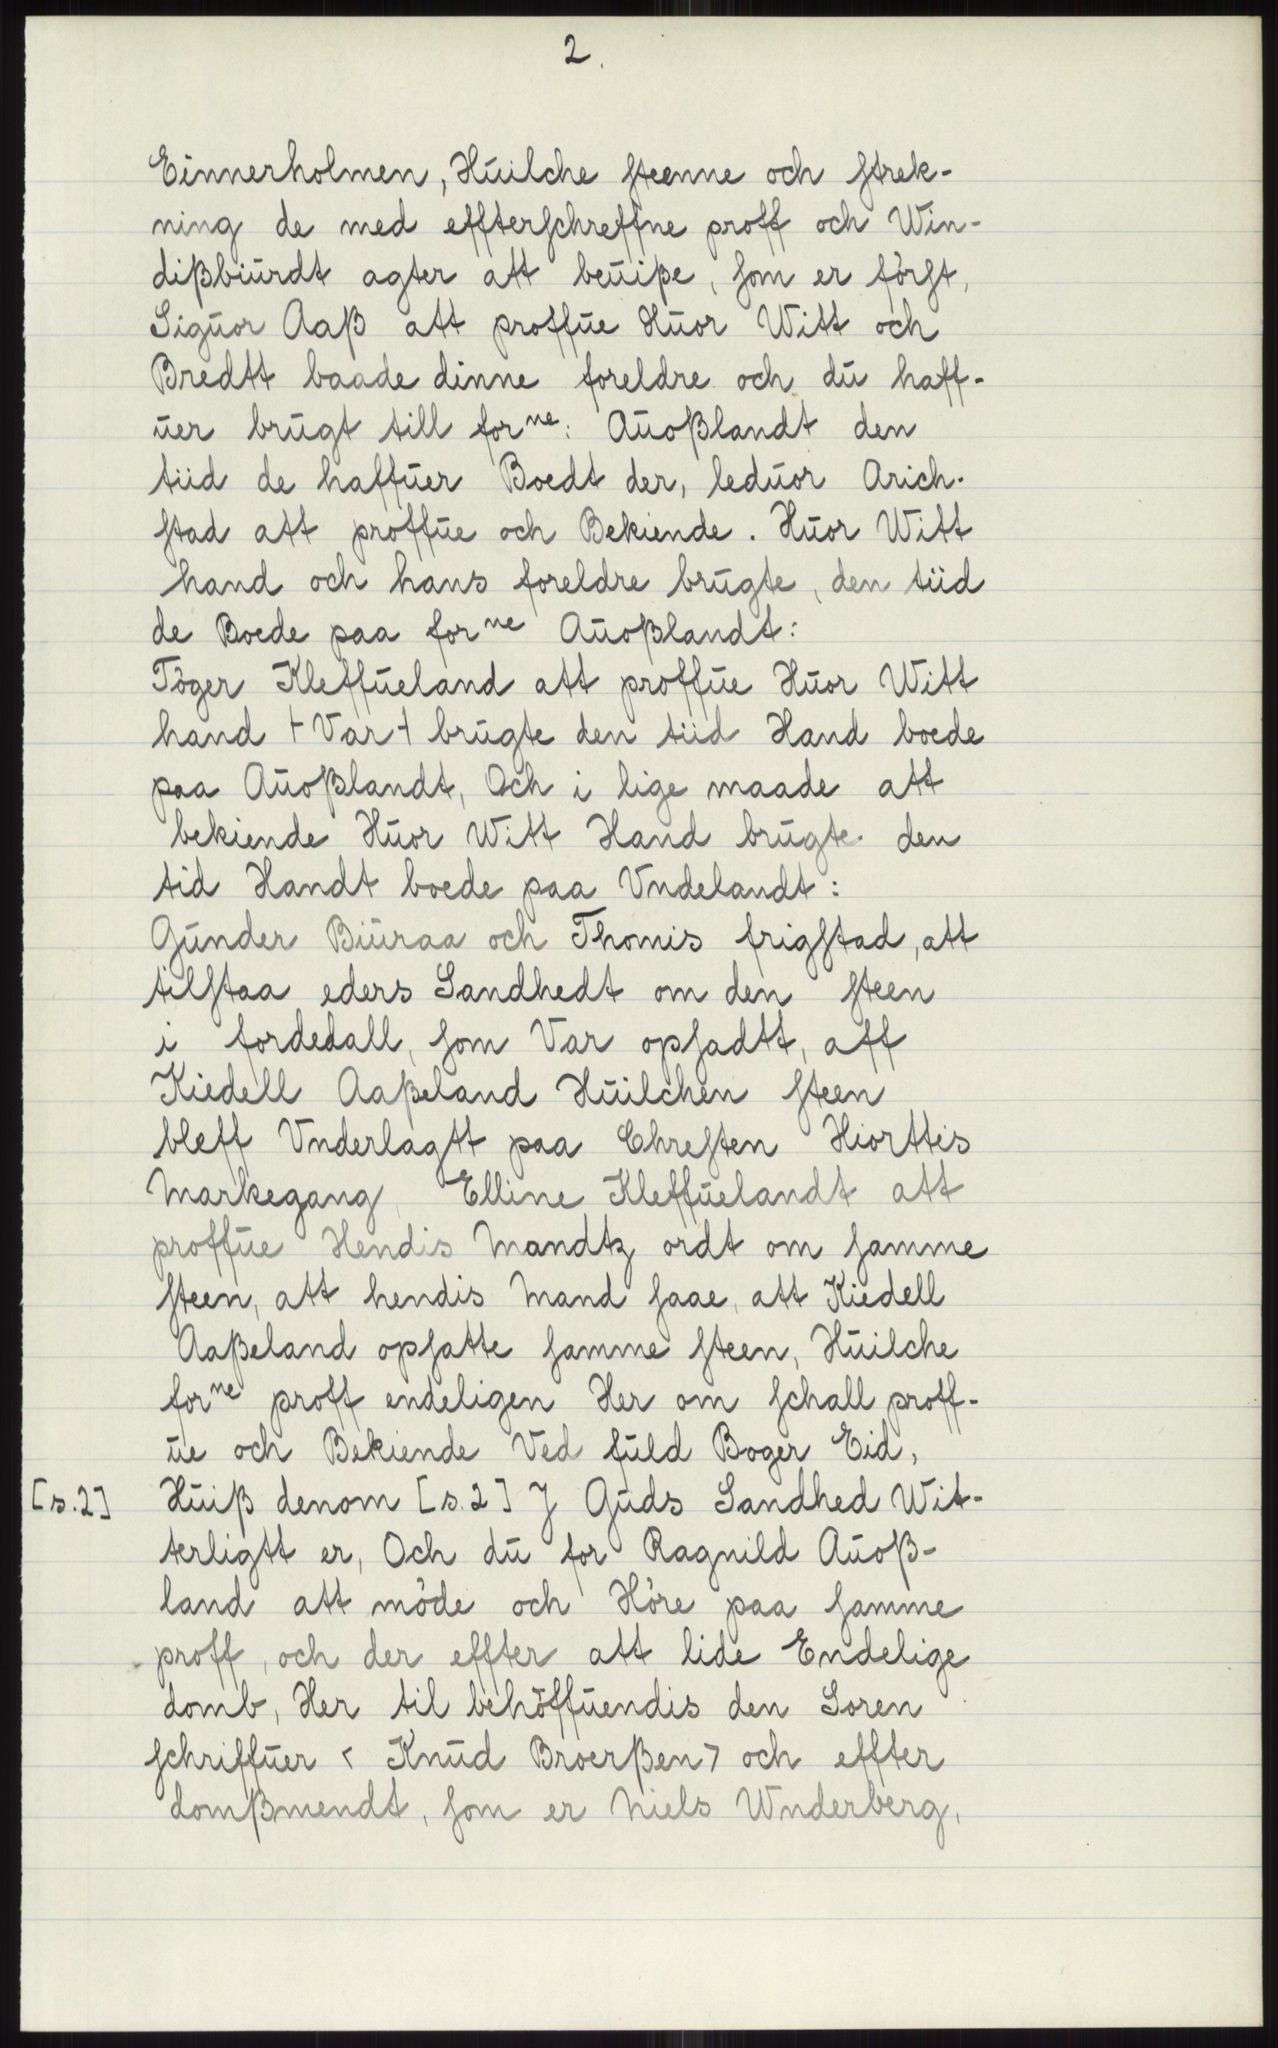 2.
Einnerholmen, Huilche steenne och strek-
ning de med effterschreffne proff och Win-
dißbiurdt agter att beuiße, som er först,
Siguor Aaß att proffue Huor Witt och
Bredtt baade dinne foreldre och du haff-
uer brugt till forne: Auoßlandt den
tiid de haffuer Boedt der, leduor Arich-
stad att proffue och Bekiende. Huor Witt
hand och hans foreldre brugte, den tiid
de Boede paa forne Auoßlandt:
Töger Kleffueland att proffue Huor Witt
hand ÷ Var ÷ brugte den tiid Hand boede
paa Auoßlandt, Och i lige maade att
bekiende Huor Witt Hand brugte den
tid Handt boede paa Vndelandt:
Gunder Biuraa och Thomis frigstad, att
tilstaa eders Sandhedt om den steen
i fordedall, som Var opsadtt, aff
Kiedell Aaßeland Huilchen steen
bleff Vnderlagtt paa Chresten Hiorttis
Markegang, Elline Kleffuelandt att
proffue Hendis Mandtz ordt om samme
steen, att hendis Mand saae, att Kiedell
Aaßeland opsatte samme steen, Huilche
forne proff endeligen Her om schall proff-
ue och Bekiende Ved fuld Boger Eid,
[s.2] Huiß denom [s.2] J Guds Sandhed Wit-
terligtt er, Och du for Ragnild Auoß-
land att möde och Höre paa samme
proff, och der effter att lide Endelige
domb, Her til behöffuendis den Soren
schriffuer < Knud Broerßen > och effter
domßmendt, som er Niels Wnderberg,